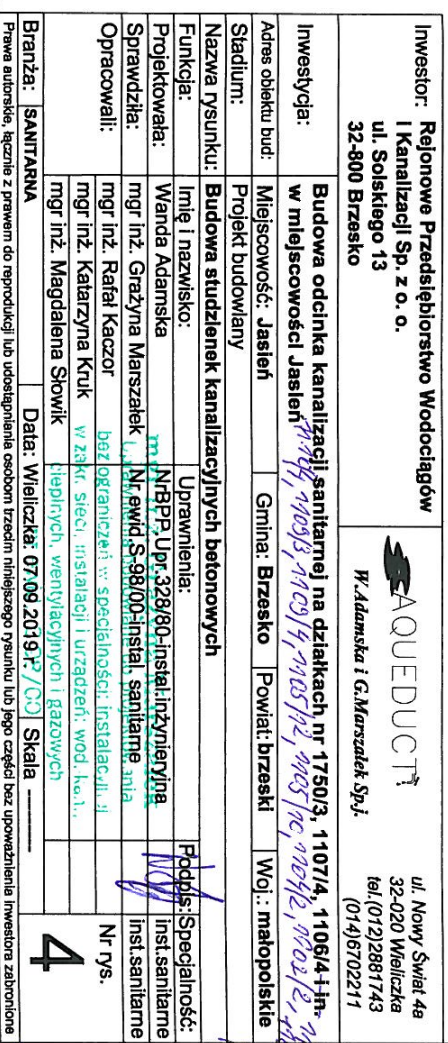 Inwestor: Rejonowe Przedsiębiorstwo Wodociągów
i Kanalizacji Sp. z o. o.
ul. Solskiego 13
32-800 Brzesko
AQUEDUCT
W.Adamska i G.Marszałek Sp.j.
ul. Nowy Świat 4a
32-020 Wieliczka
tel.(012)2881743
(014)6702211
Inwestycja: Budowa odcinka kanalizacji sanitarnej na działkach nr 1750/3, 1107/4, 1106/4 i in.
w miejscowości Jasień
1109/3, 1109/4, 1105/12, 1105/10, 1104/2, 1102/2,
Adres obiektu bud: Miejscowość: Jasień Gmina: Brzesko Powiat: brzeski Woj.: małopolskie
Stadium: Projekt budowlany
Nazwa rysunku: Budowa studzienek kanalizacyjnych betonowych
Funkcja: Imię i nazwisko: Uprawnienia: Podpis: Specjalność:
Projektowała: Wanda Adamska NrBPP.Upr.328/80-instal.inżynieryjna inst.sanitarne
Sprawdziła: mgr inż. Grażyna Marszałek Nr. ewid.S-98/00-instal. sanitarne inst.sanitarne
Opracowali: mgr inż. Rafał Kaczor
mgr inż. Katarzyna Kruk
mgr inż. Magdalena Słowik
bez ograniczeń w specjalności: instalacyjnej
w zakr. sieci, instalacji i urządzeń: wod. kan.,
cieplnych, wentylacyjnych i gazowych
Nr rys.
4
Branża: SANITARNA Data: Wieliczka: 07.09.2019.r. Skala
Prawa autorskie, łącznie z prawem do reprodukcji lub udostępniania osobom trzecim niniejszego rysunku lub jego części bez upoważnienia inwestora zabronione